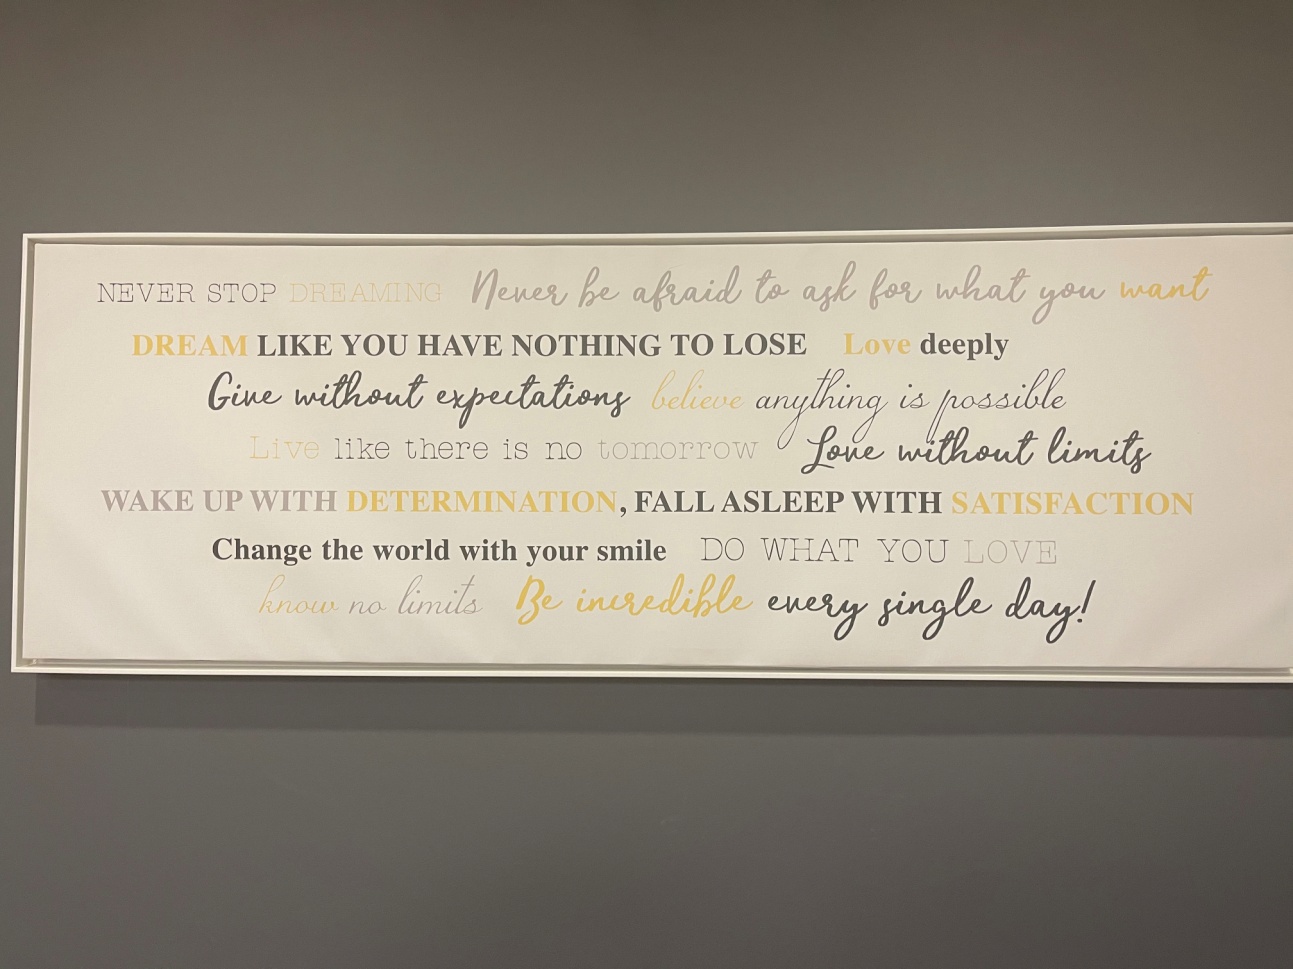 NEVER STOP DREAMING Never be afraid to ask for what you want
DREAM LIKE YOU HAVE NOTHING TO LOSE Love deeply
Give without expectations believe anything is possible
Live like there is no tomorrow Love without limits
WAKE UP WITH DETERMINATION, FALL ASLEEP WITH SATISFACTION
Change the world with your smile DO WHAT YOU LOVE
know no limits Be incredible every single day!